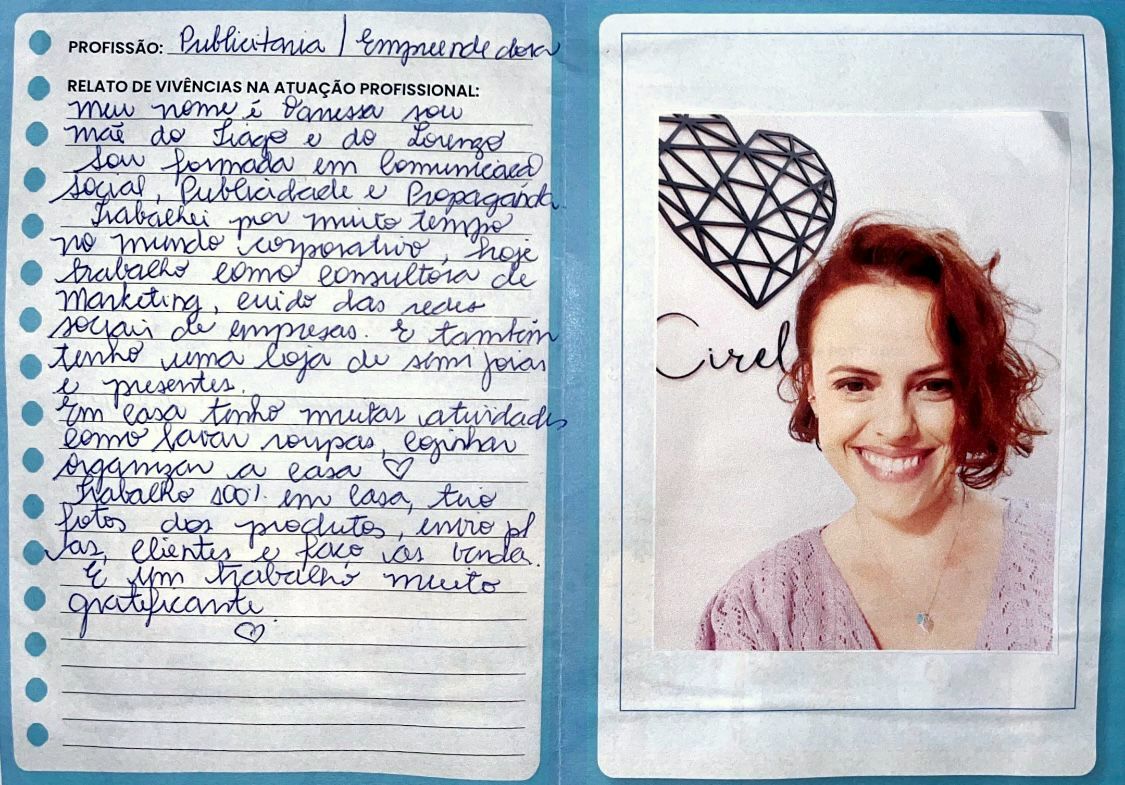 PROFISSÃO: Publicitaria / Empreendedora
RELATO DE VIVÊNCIAS NA ATUAÇÃO PROFISSIONAL:
Meu nome é Vanessa sou
mãe do Tiago e do Lorenzo
Sou formada em Comunicação
social, Publicidade e Propaganda.
Trabalhei por muito tempo
no mundo corporativo, hoje
trabalho como consultora de
Marketing, cuido das redes
sociais de empresas. E também
tenho uma loja de semi joias
e presentes.
Em casa tenho muitas atividades
como lavar roupas, cozinhar
organizar a casa ♡
Trabalho 100% em casa, tiro
fotos dos produtos, envio p/
as, clientes e faço as vendas.
E um trabalho muito
gratificante
♡
Cirel